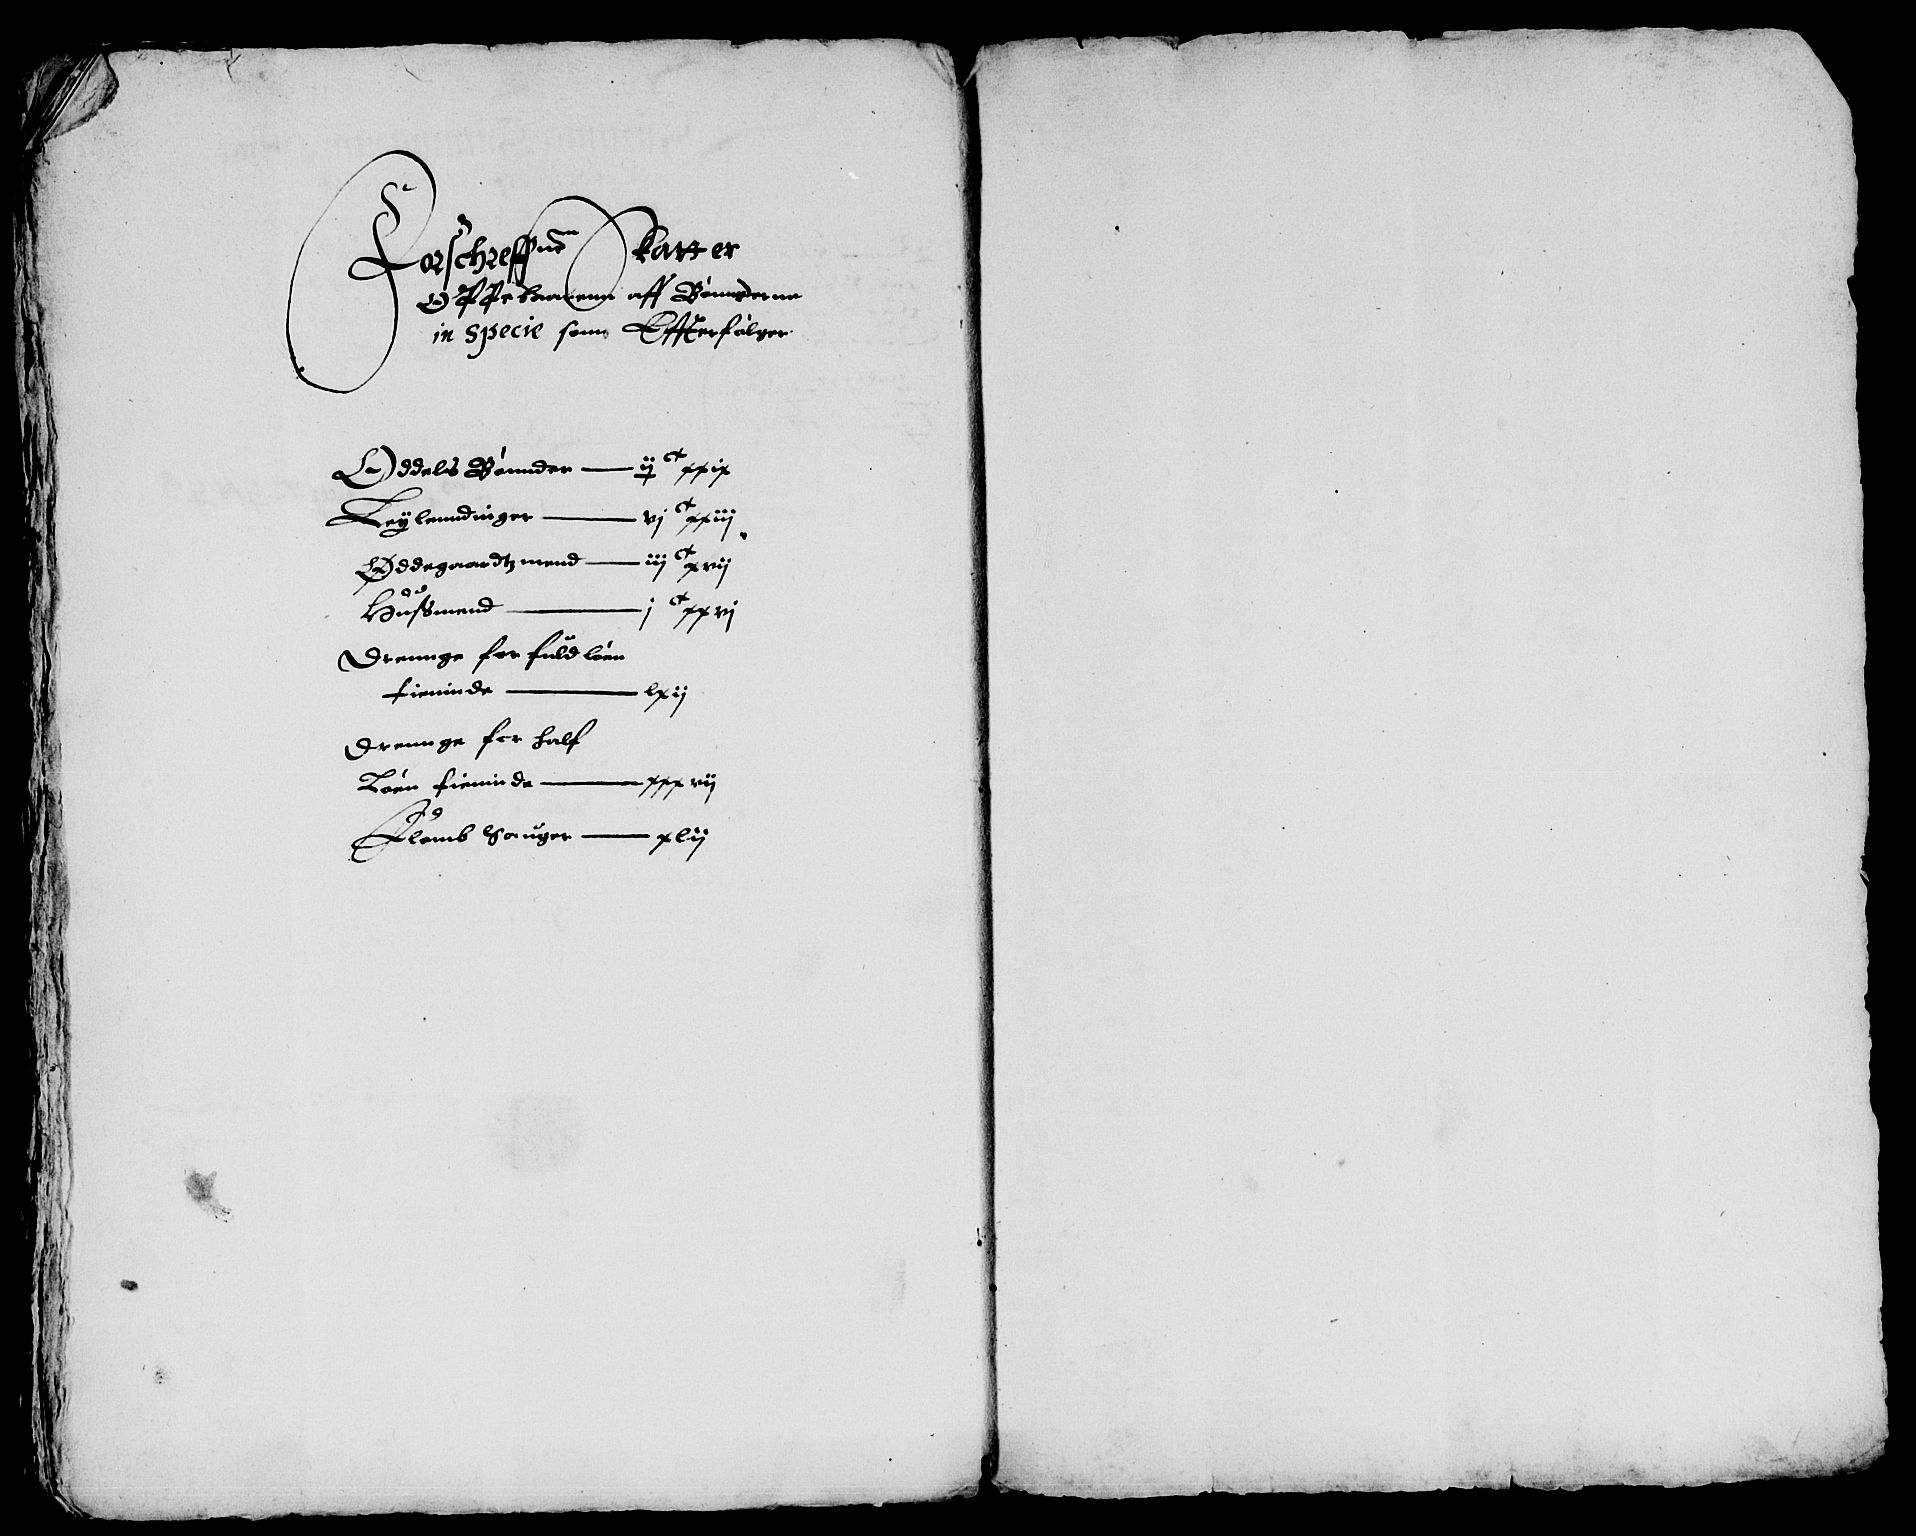 Forschreffne Skatter
Oppebaarenn aff Bønnderne
in Specie som Effterfølger
Oddels Bønnder — ij C xxix
Leylenndinger — vj C xxiij
Ødegaardtz mend — iij C xvij
Hussmend — j C xxvj
Drennge for fuld løen
tieninde — lxij
Drennge for half
Løen tieninde — xxxvij
Flomb Sauger — xlij